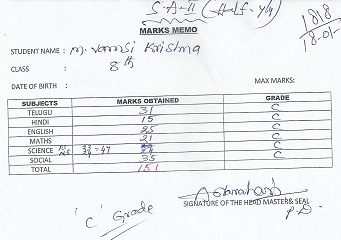 S-A-II (Half-yly)
1818
18-01
MARKS MEMO
STUDENT NAME : M. Vamsi Krishna
CLASS : 8th
DATE OF BIRTH :
MAX MARKS:
SUBJECTS MARKS OBTAINED GRADE
TELUGU 31 C
HINDI 15 C
ENGLISH 25 C
MATHS 21 C
SCIENCE PS NS 23 24 =47 24 C
SOCIAL 35 C
TOTAL 151
'C' Grade
SIGNATURE OF THE HEAD MASTER& SEAL